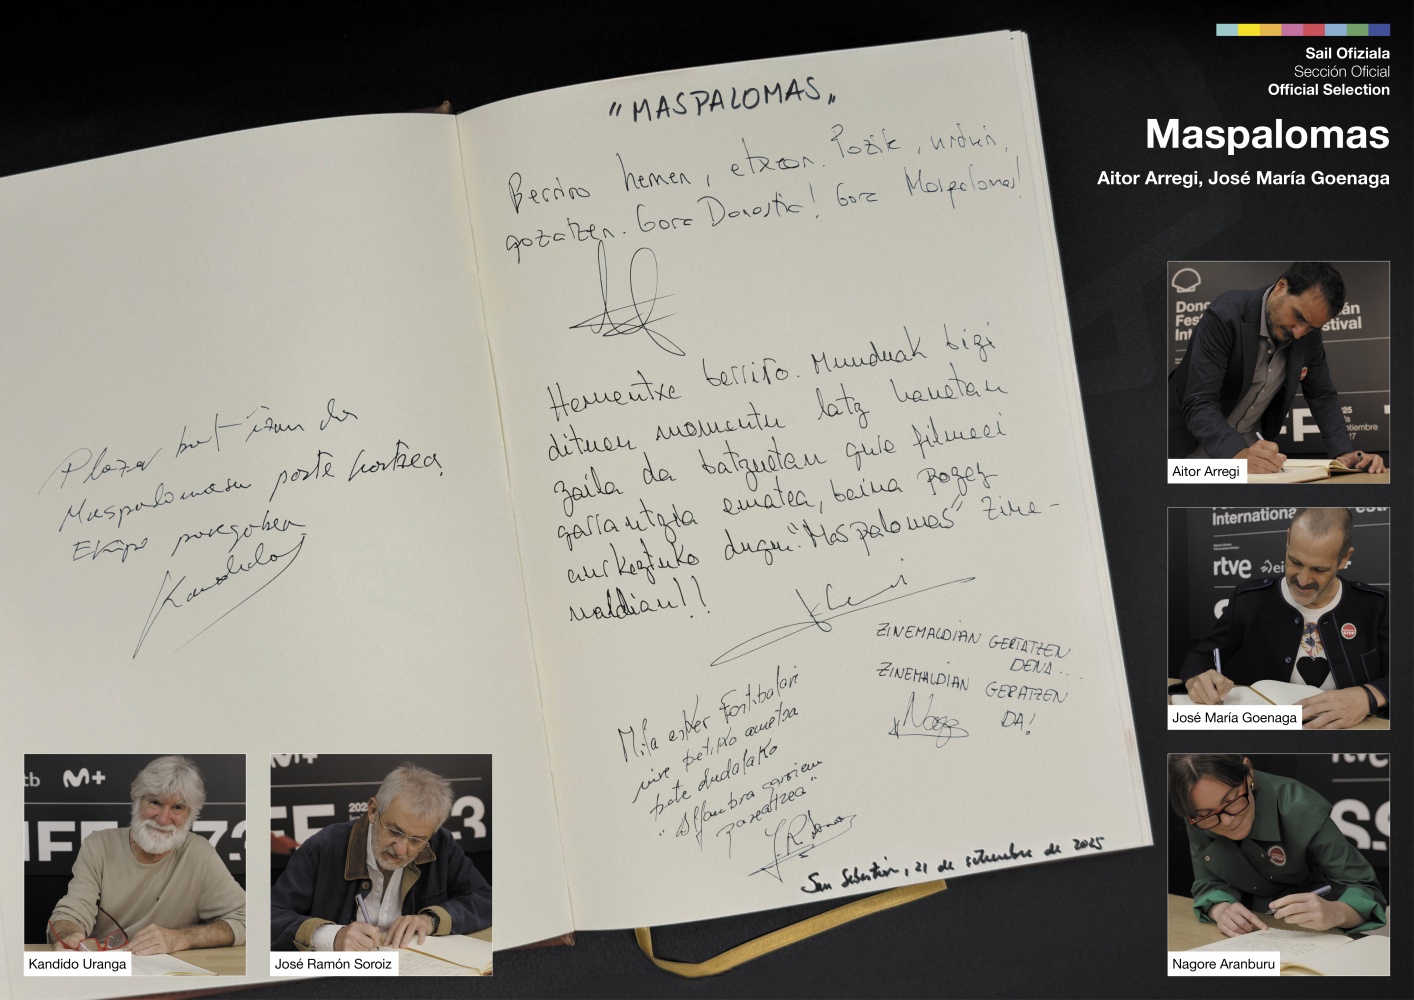 Sail Ofiziala
Sección Oficial
Official Selection
Maspalomas
Aitor Arregi, José María Goenaga
"MASPALOMAS"
Berriro hemen, etxean. Pozik, urduri,
gozatzen. Gora Donostia! Gora Maspalomas!
Hementxe berriro. Munduak bizi
dituen momentu latz hauetan
zaila da batzuetan gure filmeei
garrantzia ematea, baina pozez
aurkeztuko dugu "Maspalomas" Zine-
maldian!!
ZINEMALDIAN GERTATZEN
DENA...
ZINEMALDIAN GERATZEN
DA!
Nago
Mila esker Festibalari
nire petiko ametsa
bete dudalako
"Alfombra gorian
paseatzea"
San Sebastián, 21 de setiembre de 2025
Plazer bat izan da
Maspalomasen parte hartzea
Ekipo
Kandido
Aitor Arregi
José María Goenaga
Nagore Aranburu
Kandido Uranga
José Ramón Soroiz
International
rtve
tb M+